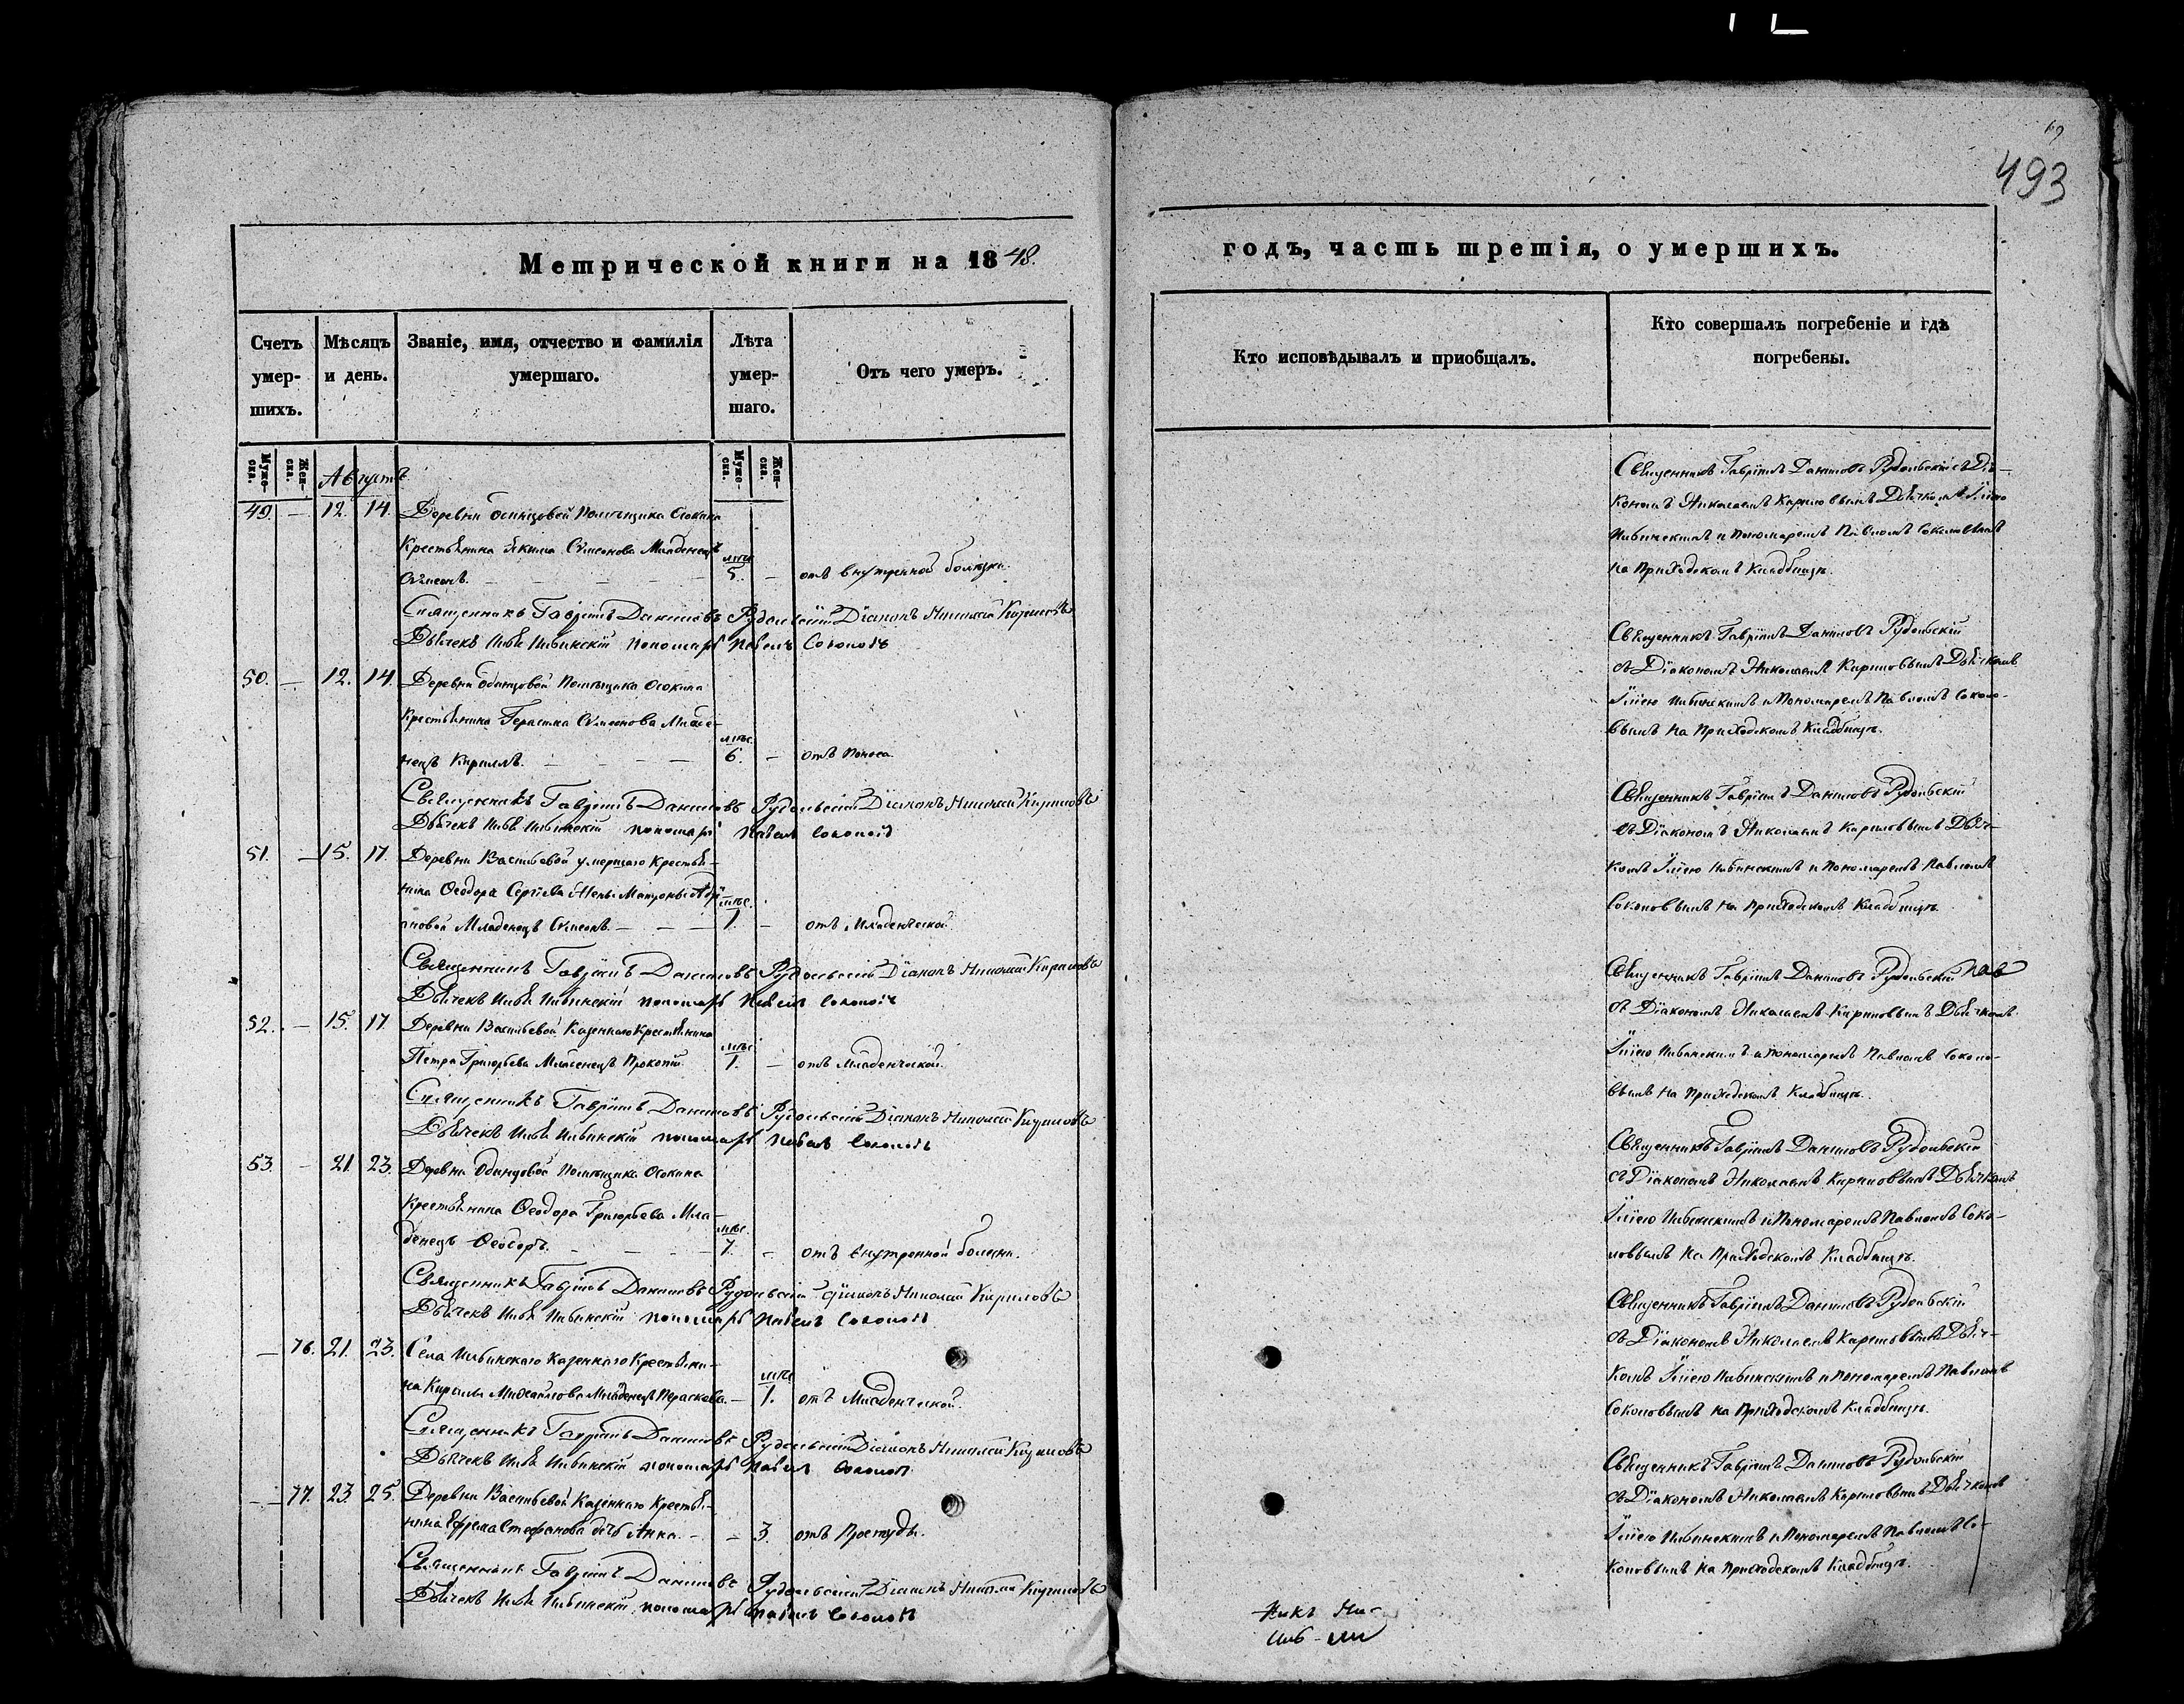 493
Метрической книги на 1848.
годъ, часть третія, о умершихъ.
Счетъ умер-шихъ.
Мѣсяцъ и день.
Званіе, имя, отчество и фамилія умершаго.
Лѣта умер-шаго.
Отъ чего умеръ.
Кто исповѣдывалъ и приобщалъ.
Кто совершалъ погребеніе и гдѣ погребены.
Муже-ска.
Жен-ска.
Муже-ска.
Жен-ска.
Августъ
49. — 12. 14. Деревни Помѣщика Осокина
Крестьянина Якима Сѵмеонова Младенецъ
Сѵмеонъ. — 5. — отъ внутренной болѣзни.
Священникъ Гавріилъ Даниловъ Рудольскій Діаконъ Николай Кириловъ
Дьячекъ Илья Ильинскій пономарь Павелъ Соколовъ
Священникъ Гавріилъ Даниловъ Рудольскій съ Діа-
кономъ Николаемъ Кириловымъ Дьячкомъ Иліею
Ильинскимъ и Пономаремъ Павломъ Соколовымъ
на Приходскомъ Кладбищѣ.
50. — 12. 14. Деревни Одинцовой Помѣщика Осокина
Крестьянина Герасима Сѵмеонова Младе-
нецъ Кириллъ. — 6. — отъ Поноса
Священникъ Гавріилъ Даниловъ Рудольскій Діаконъ Николай Кириловъ
Дьячекъ Илья Ильинскій пономарь Павелъ Соколовъ
Священникъ Гавріилъ Даниловъ Рудольскій
съ Діакономъ Николаемъ Кириловымъ Дьячкомъ
Иліею Ильинскимъ и Пономаремъ Павломъ Соколо-
вымъ на Приходскомъ Кладбищѣ.
51. — 15. 17. Деревни Васильевой умершаго Крестья-
нина Ѳеодора Сергіева Жены Матроны
Младенецъ Сѵмеонъ. — 1. — отъ Младенческой.
Священникъ Гавріилъ Даниловъ Рудольскій Діаконъ Николай Кириловъ
Дьячекъ Илья Ильинскій пономарь Павелъ Соколовъ
Священникъ Гавріилъ Даниловъ Рудольскій
съ Діакономъ Николаемъ Кириловымъ Дьяч-
комъ Иліею Ильинскимъ и Пономаремъ Павломъ
Соколовымъ на Приходскомъ Кладбищѣ.
52. — 15. 17 Деревни Васильевой Казеннаго Крестьянина
Петра Григорьева Младенецъ Прокопій 1. — отъ Младенческой.
Священникъ Гавріилъ Даниловъ Рудольскій Діаконъ Николай Кириловъ
Дьячекъ Илья Ильинскій пономарь Павелъ Соколовъ
Священникъ Гавріилъ Даниловъ Рудольскій
съ Діакономъ Николаемъ Кириловымъ Дьячкомъ
Иліею Ильинскимъ и Пономаремъ Павломъ Соколо-
вымъ на Приходскомъ Кладбищѣ.
53. — 21. 23. Деревни Одинцовой Помѣщика Осокина
Крестьянина Ѳеодора Григорьева Мла-
денецъ Ѳеодоръ. — 7. — отъ внутренной болѣзни.
Священникъ Гавріилъ Даниловъ Рудольскій Діаконъ Николай Кириловъ
Дьячекъ Илья Ильинскій пономарь Павелъ Соколовъ
Священникъ Гавріилъ Даниловъ Рудольскій
съ Діакономъ Николаемъ Кириловымъ Дьячкомъ
Иліею Ильинскимъ и Пономаремъ Павломъ Соко-
ловымъ на Приходскомъ Кладбищѣ.
— 76. 21. 23. Села Ильинскаго Казеннаго Крестьяни-
на Кирилы Михайлова Младенецъ Параскева. — 1. отъ Младенческой.
Священникъ Гавріилъ Даниловъ Рудольскій Діаконъ Николай Кириловъ
Дьячекъ Илья Ильинскій пономарь Павелъ Соколовъ
Священникъ Гавріилъ Даниловъ Рудольскій
съ Діакономъ Николаемъ Кириловымъ Дьяч-
комъ Иліею Ильинскимъ и Пономаремъ Павломъ
Соколовымъ на Приходскомъ Кладбищѣ.
— 77. 23. 25. Деревни Васильевой Казеннаго Крестья-
нина Ефрема Стефанова дочь Анна. — 3. отъ Простуды.
Священникъ Гавріилъ Даниловъ Рудольскій Діаконъ Николай Кириловъ
Дьячекъ Илья Ильинскій пономарь Павелъ Соколовъ
Священникъ Гавріилъ Даниловъ Рудольскій
съ Діакономъ Николаемъ Кириловымъ Дьячкомъ
Иліею Ильинскимъ и Пономаремъ Павломъ Со-
коловымъ на Приходскомъ Кладбищѣ.